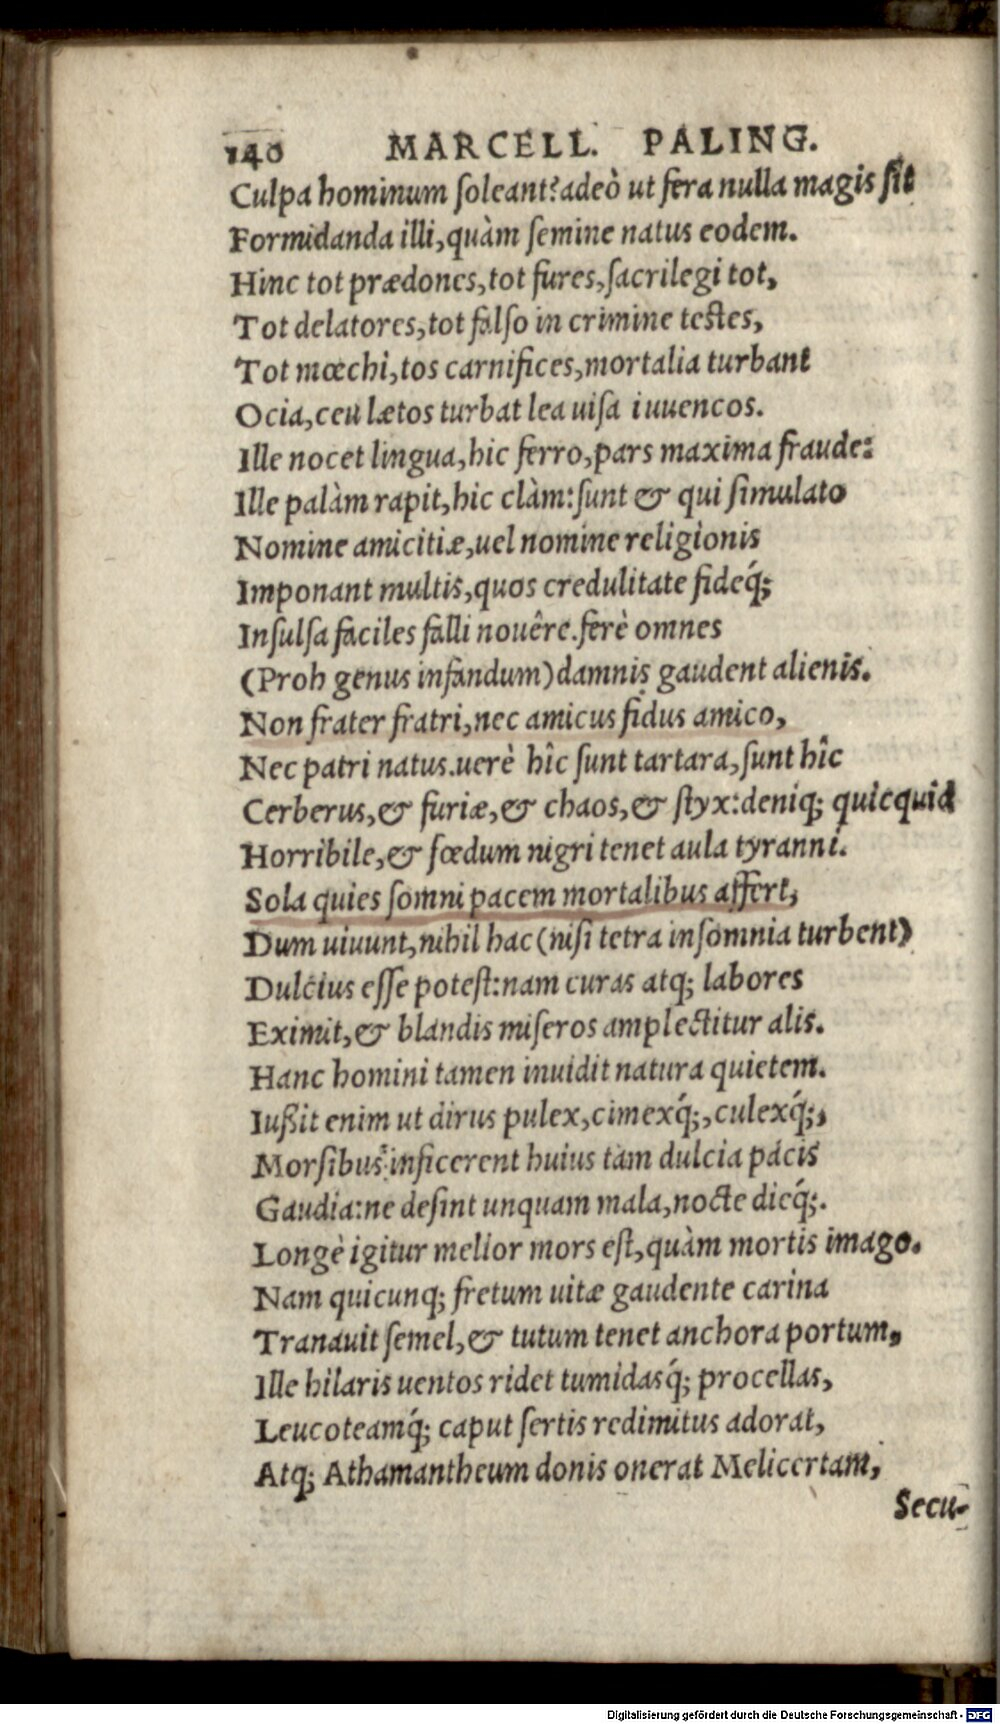 140 MARCELL. PALING.
Culpa hominum ſoleant? adeò ut fera nulla magis ſit
Formidanda illi, quàm ſemine natus eodem.
Hinc tot prædones, tot fures, ſacrilegi tot,
Tot delatores, tot falſo in crimine teſtes,
Tot mœchi, tos carnifices, mortalia turbant
Ocia, ceu lætos turbat lea uiſa iuuencos.
Ille nocet lingua, hic ferro, pars maxima fraude:
Ille palàm rapit, hic clàm: ſunt & qui ſimulato
Nomine amicitiæ, uel nomine religionis
Imponant multis, quos credulitate fideq́;
Inſulſa faciles falli nouêre. ferè omnes
(Proh genus infandum) damnis gaudent alienis.
Non frater fratri, nec amicus fidus amico,
Nec patri natus. uerè hîc ſunt tartara, ſunt hîc
Cerberus, & furiæ, & chaos, & ſtyx: deniq; quicquid
Horribile, & fœdum nigri tenet aula tyranni.
Sola quies ſomni pacem mortalibus affert,
Dum uiuunt, nihil hac (niſi tetra inſomnia turbent)
Dulcius eſſe poteſt: nam curas atq; labores
Eximit, & blandis miſeros amplectitur alis.
Hanc homini tamen inuidit natura quietem.
Iußit enim ut dirus pulex, cimexq́;, culexq́;,
Morſibus inficerent huius tam dulcia pacis
Gaudia: ne deſint unquam mala, nocte dieq́;.
Longè igitur melior mors eſt, quàm mortis imago.
Nam quicunq; fretum uitæ gaudente carina
Tranauit ſemel, & tutum tenet anchora portum,
Ille hilaris uentos ridet tumidasq́; procellas,
Leucoteamq́; caput ſertis redimitus adorat,
Atq; Athamantheum donis onerat Melicertam,
Secu-
Digitalisierung gefördert durch die Deutsche Forschungsgemeinschaft - DFG